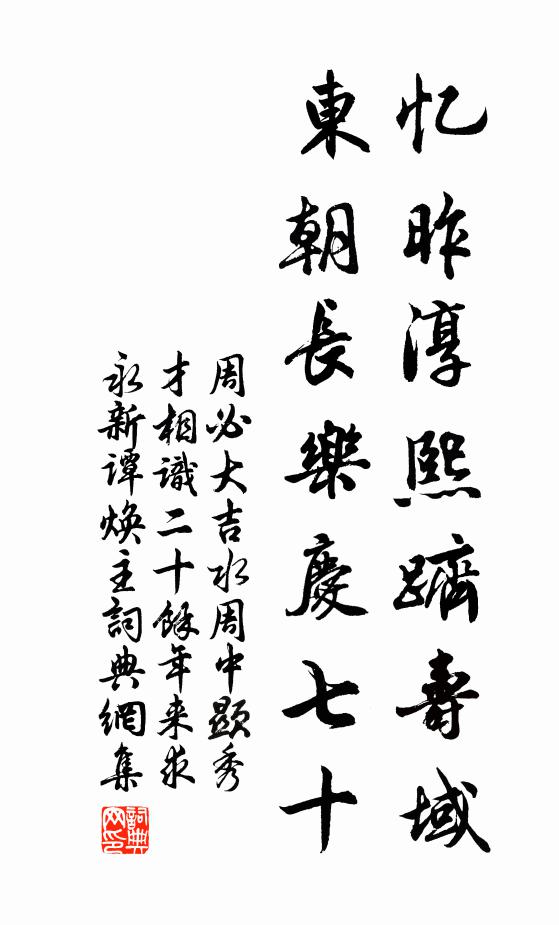 忆昨淳熙躋壽域
東朝長樂慶七十
周必大吉水周中顯秀
才相識二十餘年来求
永新譚煥主詞典網集
詞典网印